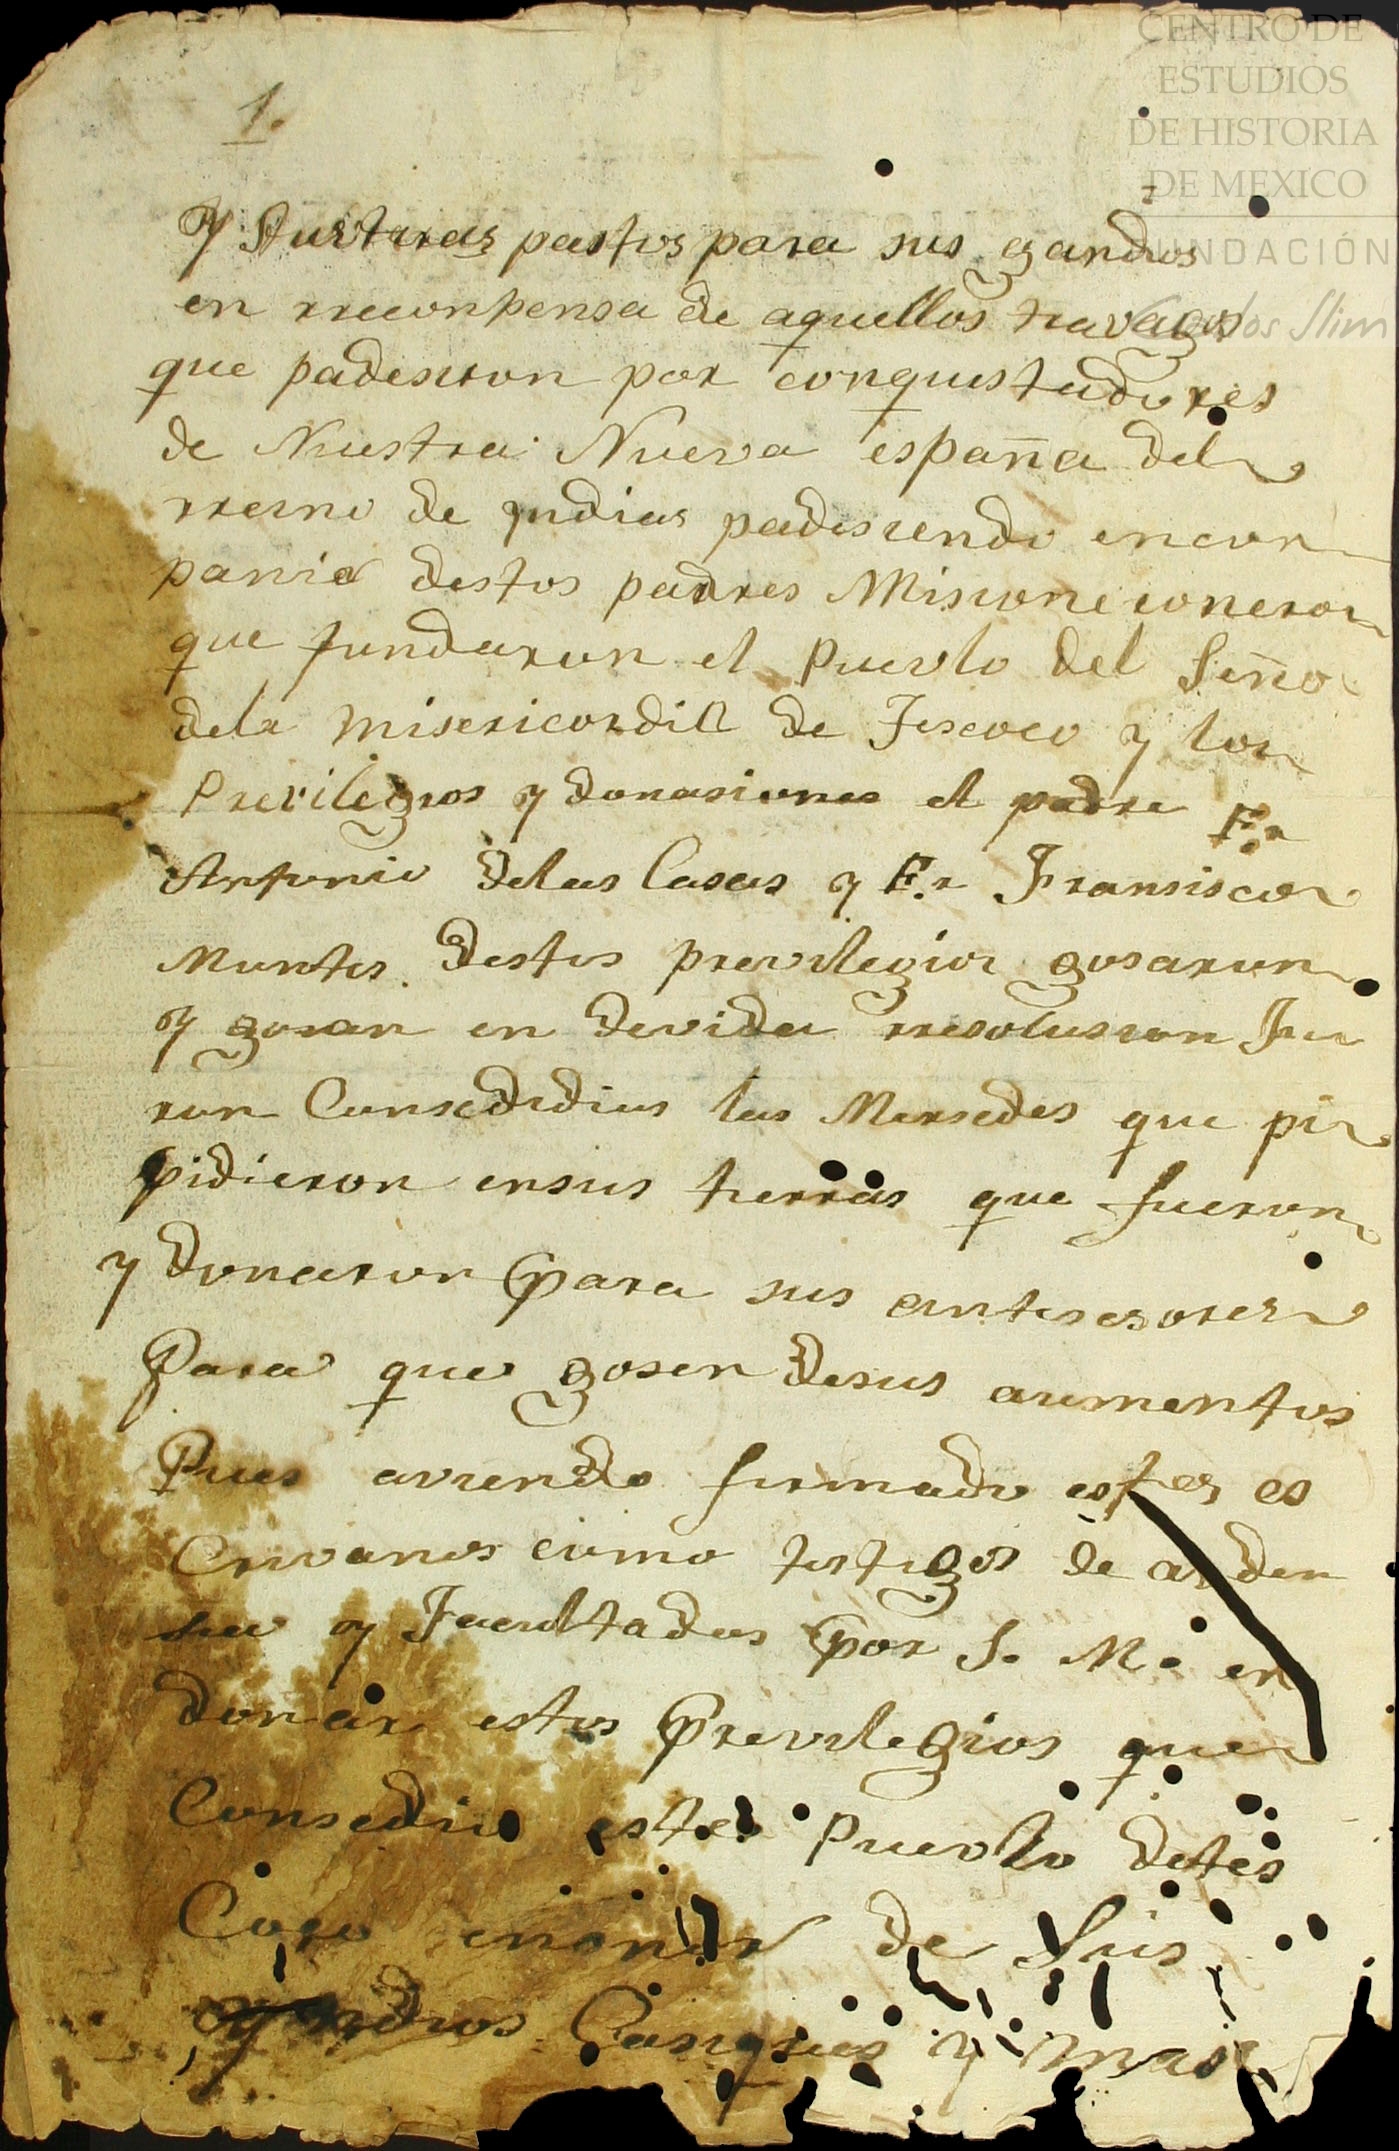 CENTRO DE
ESTUDIOS
DE HISTORIA
DE MEXICO
FUNDACIÓN
Carlos Slim
1.
y pastos para sus ganados
en rreconpensa de aquellos travagos
que padesieron por conquistadores
de Nuestra Nueva españa del
rreyno de yndias padesiendo encon
pania destos padres Misioneconeros
que fundaron el Puevlo del Seño
dela Misericordia de Tescoco y los
Previlegios y donasiones el padre Fr
Antonio delas Casas y Fr Fransisco
Montes. destos previlegios gosaron
y gosan en devida rresolusion Fue
ron Consedidias las Mersedes que pi
pidieron ensus tierras que fueron
y donaron para sus antesesores
Para que gosen desus aumentos
Pues aviendo firmado estos es
crivanos como testigos de asden
sia y Facultados por S. M. en
donar estos Previlegios que
Consedio este Puevlo detes
Coco de Sus
yndios Casiques y mas